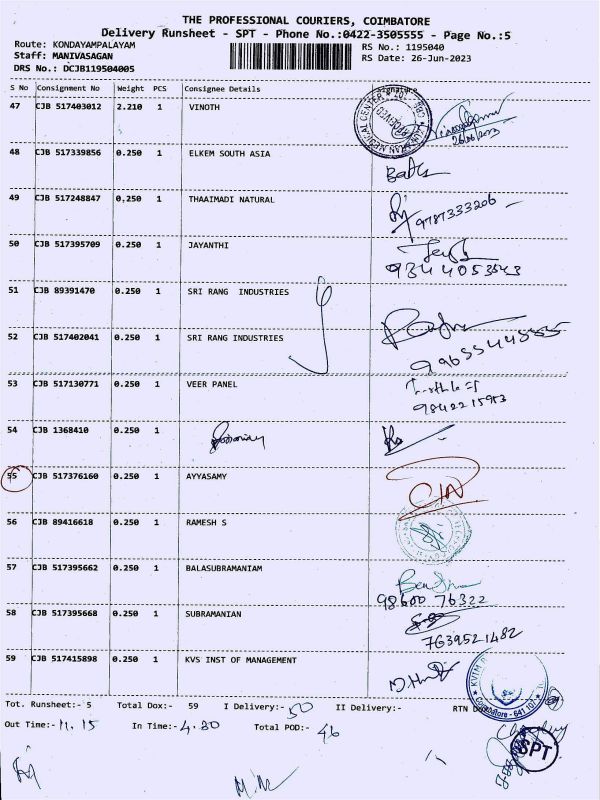 THE PROFESSIONAL COURIERS, COIMBATORE
Delivery Runsheet - SPT - Phone No.:0422-3505555 - Page No.:5
Route: KONDAYAMPALAYAM
Staff: MANIVASAGAN
DRS No.: DCJB119504005
RS No.: 1195040
RS Date: 26-Jun-2023
S No Consignment No Weight PCS Consignee Details Signature
47 CJB 517403012 2.210 1 VINOTH
48 CJB 517339856 0.250 1 ELKEM SOUTH ASIA
49 CJB 517248847 0.250 1 THAAIMADI NATURAL
9787333206
50 CJB 517395709 0.250 1 JAYANTHI
9344053543
51 CJB 89391470 0.250 1 SRI RANG INDUSTRIES
52 CJB 517402041 0.250 1 SRI RANG INDUSTRIES
53 CJB 517130771 0.250 1 VEER PANEL
9842215953
54 CJB 1368410 0.250 1
55 CJB 517376160 0.250 1 AYYASAMY
56 CJB 89416618 0.250 1 RAMESH S
57 CJB 517395662 0.250 1 BALASUBRAMANIAM
98600 76322
58 CJB 517395668 0.250 1 SUBRAMANIAN
7639521482
59 CJB 517415898 0.250 1 KVS INST OF MANAGEMENT
Tot. Runsheet:- 5 Total Dox:- 59 I Delivery:- 50 II Delivery:- RTN
Out Time:- 11.15 In Time:- 4.30 Total POD:- 46
SPT